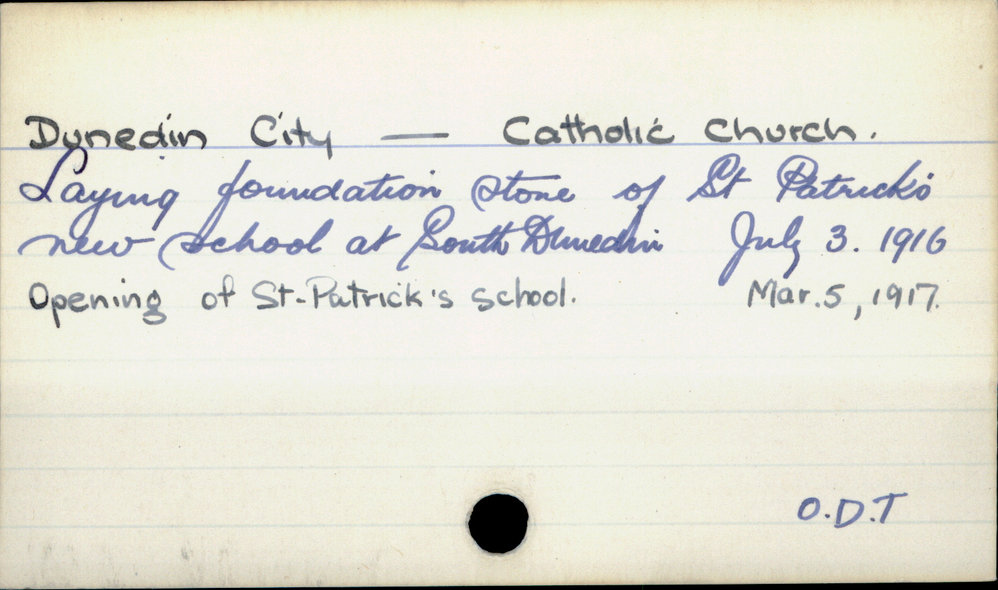 Dunedin City — Catholic Church.
Laying foundation stone of St Patrick's
new school at South Dunedin July 3. 1916
Opening of St-Patrick's school. Mar. 5, 1917.
O.D.T